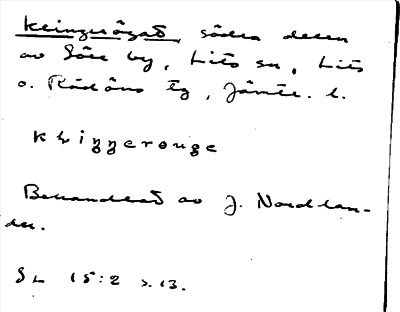 södra delen
av Söre by, Lits sn, Lits
o. Rödöns tg, Jämtl. l.
Behandlat av J. Nordlan-
der.
SL 15:2 s. 13.